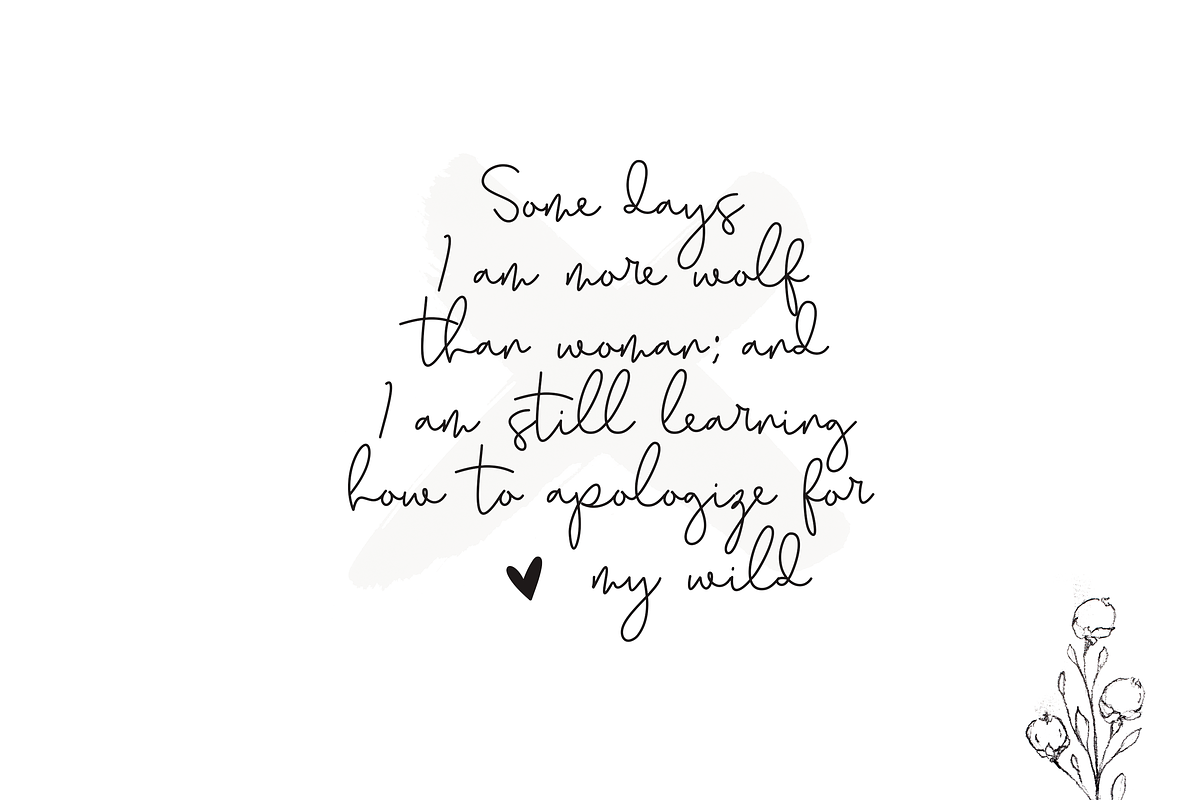 Some days
I am more wolf
than woman; and
I am still learning
how to apologize for
my wild